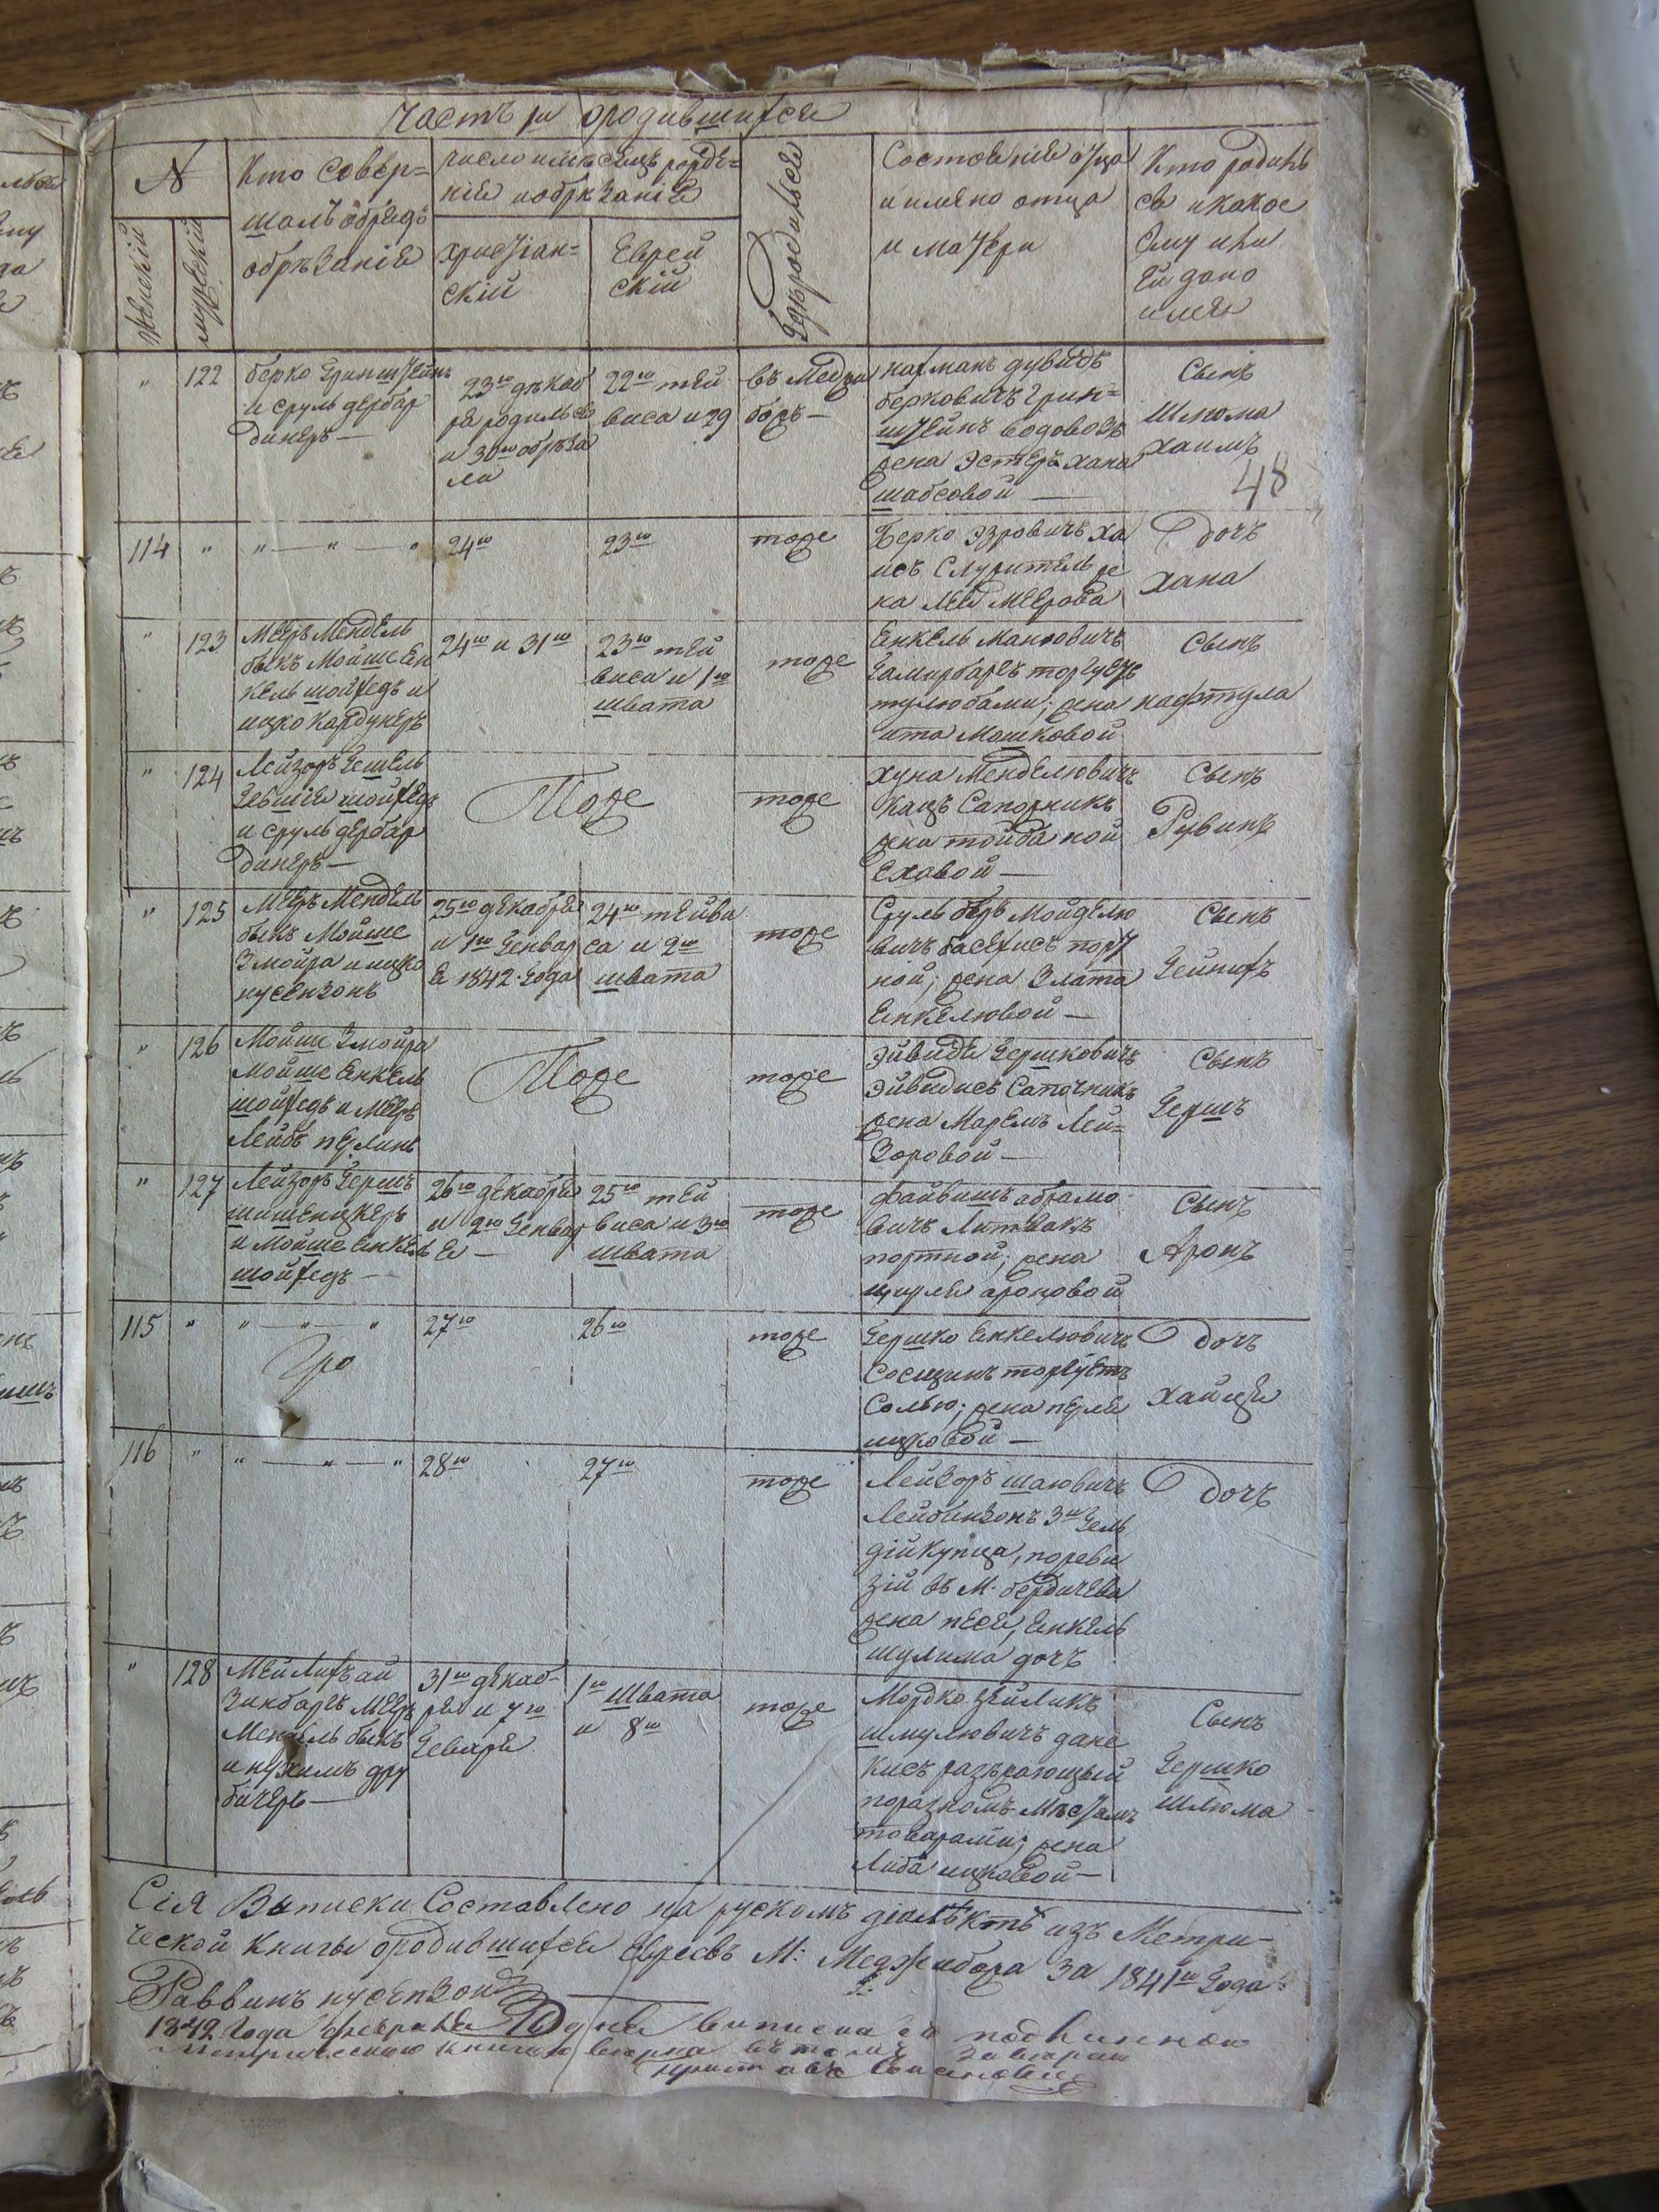 Часть 1я ородившихся
N
женскій
мужескій
Кто совер=
шалъ обрядъ
обрѣзанія
число имѣсяцъ рожде=
нія иобрѣзанія
христіан=
скій
Еврей
скій
Гдѣродился
Состояніе отца
и имяно отца
и матери
Кто родил
ся икакое
Ему или
Ей дано
имя
" 122
берко Гринштейнъ
и сруль дербар
динеръ—
23го дѣкаб
ря родился
и 30го обрѣза
ли
22го тей
виса и 29
въ Медзи
божъ—
нахманъ дувидъ
берковичъ Грин=
штейнъ водовозъ
жена Эстеръ хана
шабсовой —
Сынъ
Шлюма
хаимъ
48
114 " " — " — "
24го
23го
тоже
Берко Эзровичъ ха
исъ Служитель же
на лея меерова
дочь
хана
" 123
Меерь Мендель
быкъ Мойше Ен
кель шойхедъ и
ицко кардунеръ
24го и 31го
23го тей
виса и 1го
швата
тоже
Енкель манзовичъ
Гамарбаргъ торгуетъ
тулюбами; жена
ита Мошковой
Сынъ
нафтула
" 124
Лейзоръ Гешель
шойхедъ
и сруль дербар
динеръ—
Тоже
тоже
хуна Менделювичъ
Кацъ Сапожникъ
жена тойба ной
Еховой —
Сынъ
Рувинъ
" 125
Меерь Мендель
быкъ Мойше
Змойра и ицко
нусензонъ
25го декабря
и 1го Генвар
я 1842 года
24го тейви
са и 2го
швата
тоже
Сруль беръ Мойделю
вичъ басехисъ порт
ной; жена Злата
Енкелювой —
Сынъ
Гейнихъ
" 126
Мойше Змойра
Мойше Енкель
шойхедъ и Меерь
Лейбъ перлинъ
Тоже
тоже
Эйвидя Гершковичъ
Эйвидисъ Сапочникъ
жена Маремъ Лей=
зоровой —
Сынъ
Гершъ
" 127
Лейзоръ Гершъ
шпшеницкеръ
и Мойше Енкель
шойхедъ —
26го декабря
и 2го Генвар
я —
25го тей
виса и 3го
швата
тоже
файвишъ абрамо
вичъ Литвакъ
портной; жена
ципля ароновой
Сынъ
Аронъ
115 " " — " — "
27го
26го
тоже
Гершко Енкелювичъ
Сосицинъ торгуетъ
Солью; жена перля
ицковой —
дочь
хайця
116 " " — " — "
28го
27го
тоже
Лейзоръ шаювичъ
Лейбинзонъ 3й Гель
дій купца, поревы
зій въ М. бердичева
жена песя, Енкель
шулима дочь
дочь
" 128
Мейлихъ ай
зинбаргъ Меерь
Мендель быкъ
и нухимъ дру
бичеръ—
31го декаб-
ря и 7го
Генваря
1го Швата
и 8го
тоже
Мордко зейликъ
шмулювичъ дане
кисъ разъѣзжающый
поразномъ мѣстамъ
товарами; жена
Либа ицковой—
Сынъ
Гершко
Шлюма
Сія Выписки Составлено на рускомъ діолѣктѣ изъ Метри-
ческой книги ородившихся евреевъ М: Меджибожа за 1841го года:
Раввинъ нусензонъ
1842 года февраля дня выписка съ подлинною
Метрическою книгою вѣрна въ томъ завѣряю